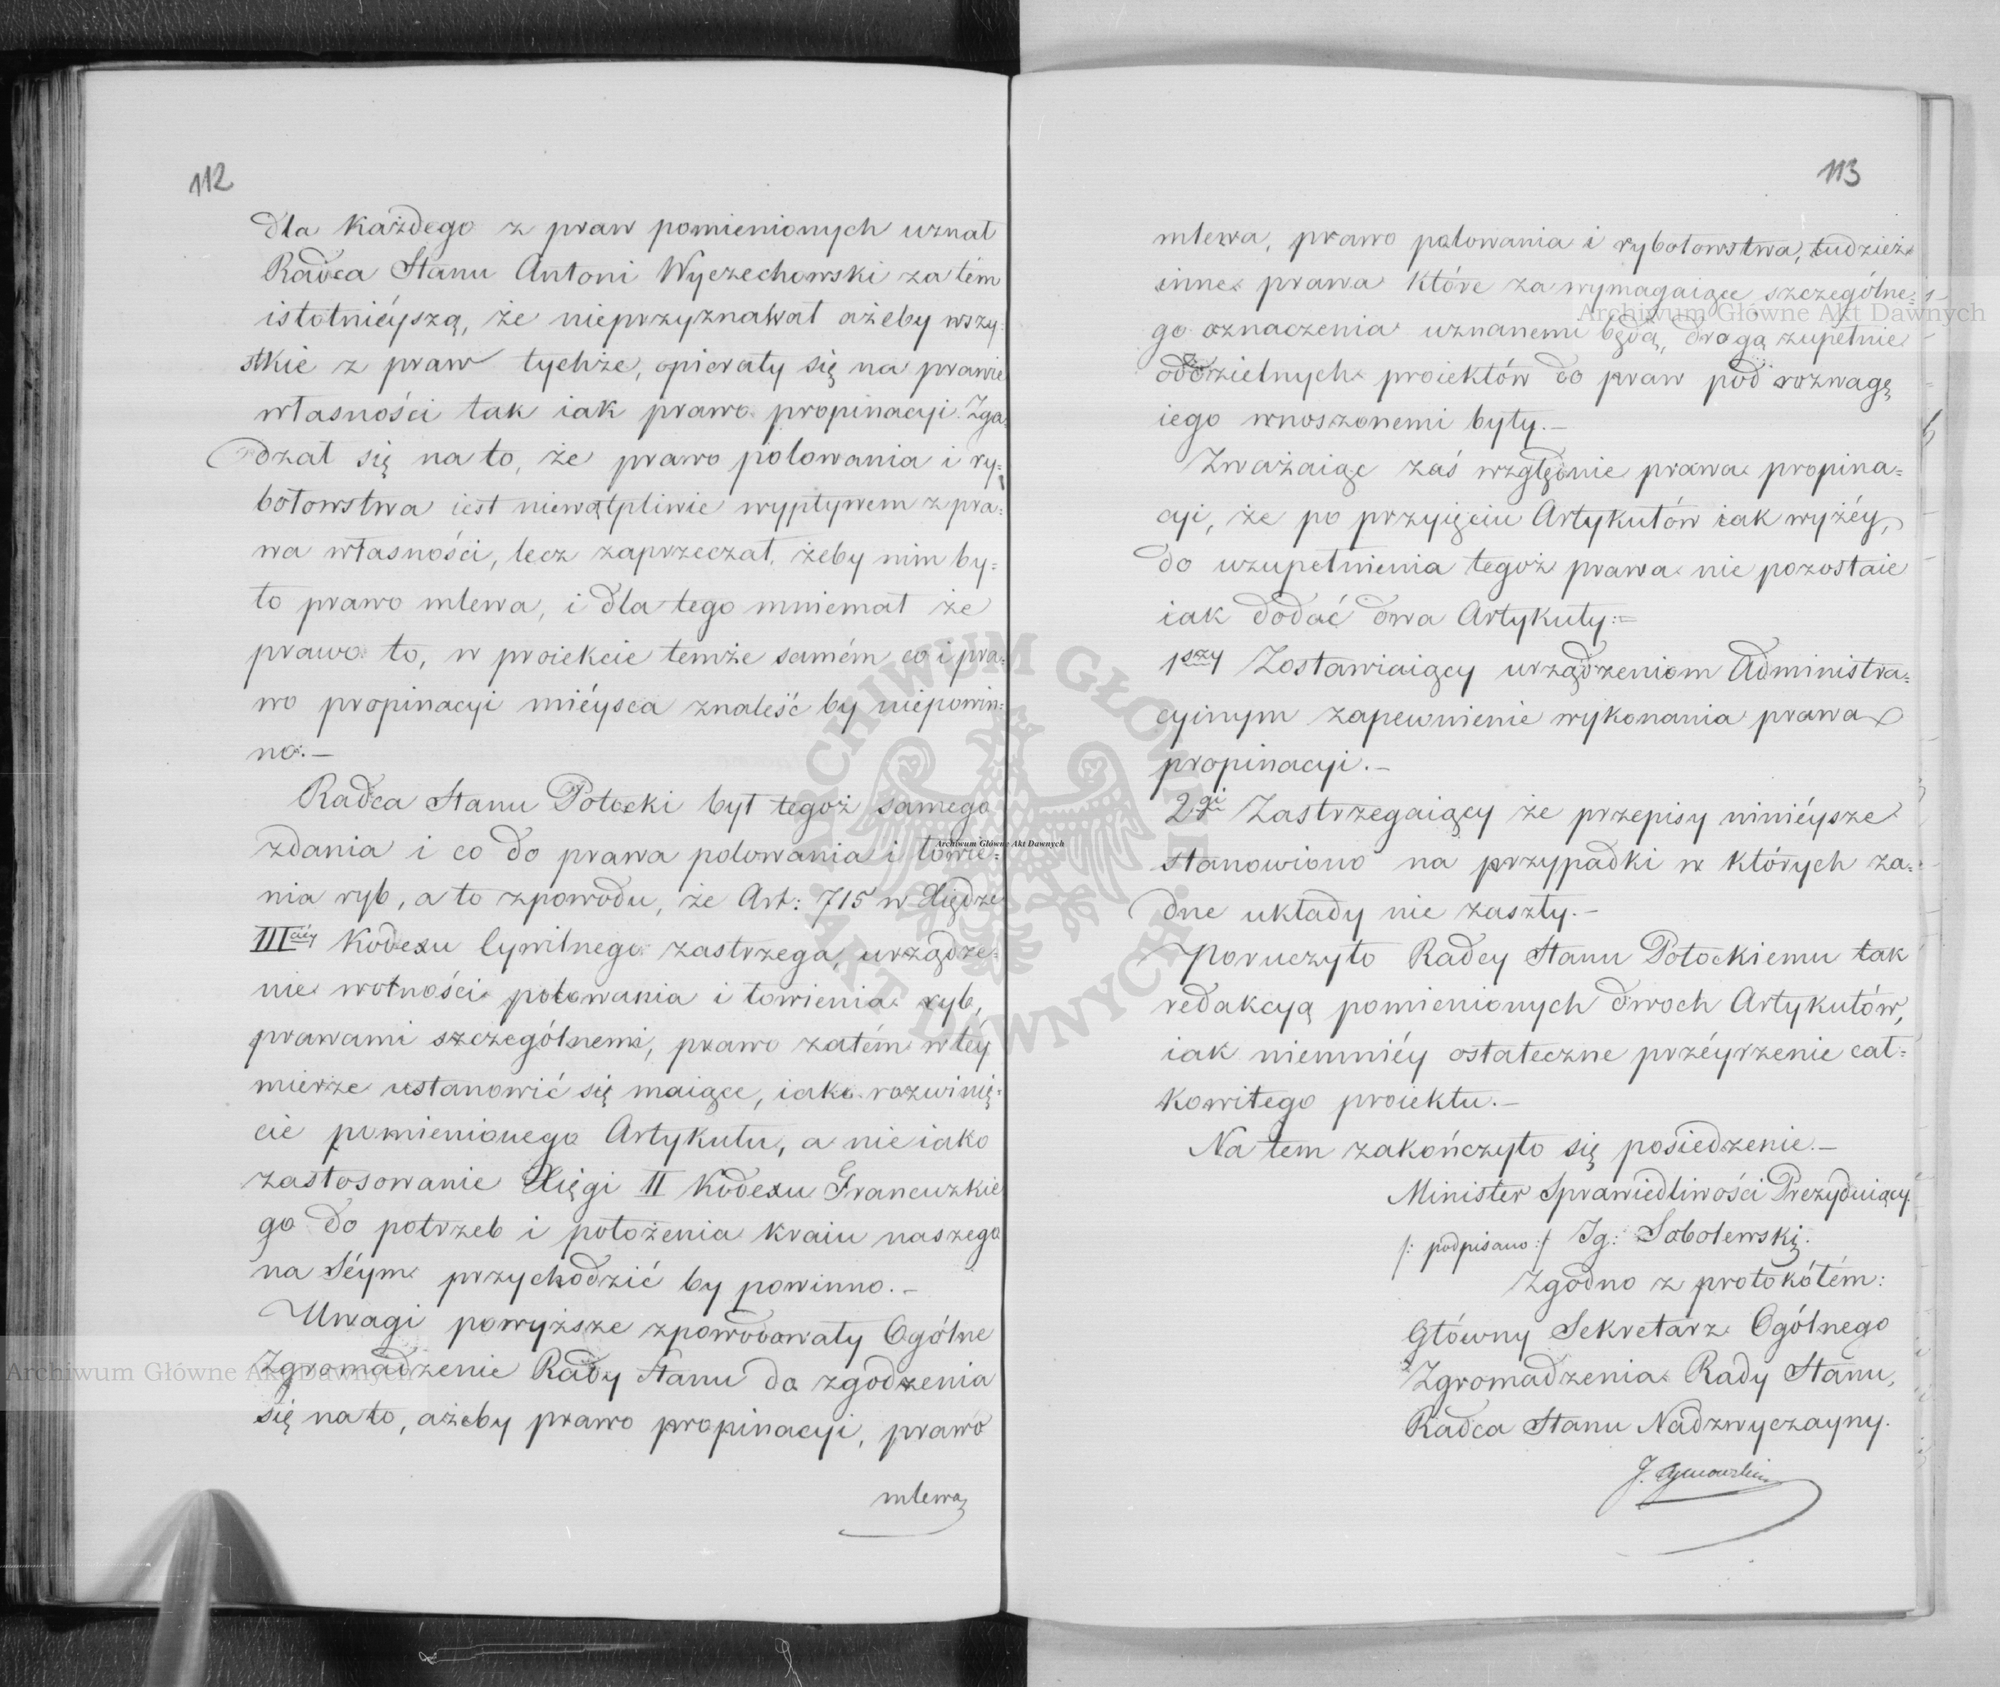 112
dla każdego z praw pomienionych uznał
Radca Stanu Antoni Wyczechowski za tém
istotnieyszą, że nieprzyznawał ażeby wszy-
stkie z praw tychże, opierały się na prawie
własności tak iak prawo propinacyi. Zga-
dzał się na to, że prawo polowania i ry-
bołowstwa iest niewątpliwie wypływem z pra-
wa własności, lecz zaprzeczał, żeby nim by-
ło prawo mlewa, i dla tego mniemał że
prawo to, w proiekcie temże samém co i pra-
wo propinacyi mieysca znaleść by niepowin-
no.—
Radca Stanu Potocki był tegoż samego
zdania i co do prawa polowania i łowie-
nia ryb, a to z powodu, że Art: 715 w Xiędze
IIIciéy Kodexu Cywilnego zastrzega, urządze-
nie wolności polowania i łowienia ryb,
prawami szczególnemi, prawo zatém w téy
mierze ustanowić się maiące, iako rozwinię-
cie pomienionego Artykułu, a nie iako
zastosowanie Xięgi II Kodexu Francuzkie
go do potrzeb i położenia kraiu naszego
na Séym przychodzić by powinno.—
Uwagi powyższe spowodowały Ogólne
Zgromadzenie Rady Stanu do zgodzenia
się na to, ażeby prawo propinacyi, prawo
mlewa
113
mlewa, prawo polowania i rybołowstwa, tudzież
inne prawa które za wymagaiące szczególne-
go oznaczenia uznanemi będą, drogą zupełnie
oddzielnych proiektów do praw pod rozwagę
iego wnoszonemi były.—
Zważaiąc zaś względnie prawa propina-
cyi, że po przyięciu Artykułów iak wyżéy,
do uzupełnienia tegoż prawa nie pozostaie
iak dodać dwa Artykuły:=
1szy Zostawiaiący urządzeniom Administra-
cyinym zapewnienie wykonania prawa
propinacyi.—
2gi Zastrzegaiący że przepisy ninieysze
stanowiono na przypadki w których ża-
dne układy nie zaszły.—
Poruczyło Radcy Stanu Potockiemu tak
redakcyą pomienionych dwoch Artykułów,
iak niemniéy ostateczne przéyrzenie cał-
kowitego proiektu.—
Na tem zakończyło się posiedzenie.—
Minister Sprawiedliwości Prezyduiący.
/: podpisano :/ Ig: Sobolewski.
Zgodno z protokółem:
Główny Sekretarz Ogólnego
Zgromadzenia Rady Stanu,
Radca Stanu Nadzwyczayny.
Archiwum Główne Akt Dawnych
Archiwum Główne Akt Dawnych
Archiwum Główne Akt Dawnych
ARCHIWUM GŁÓWNE AKT DAWNYCH